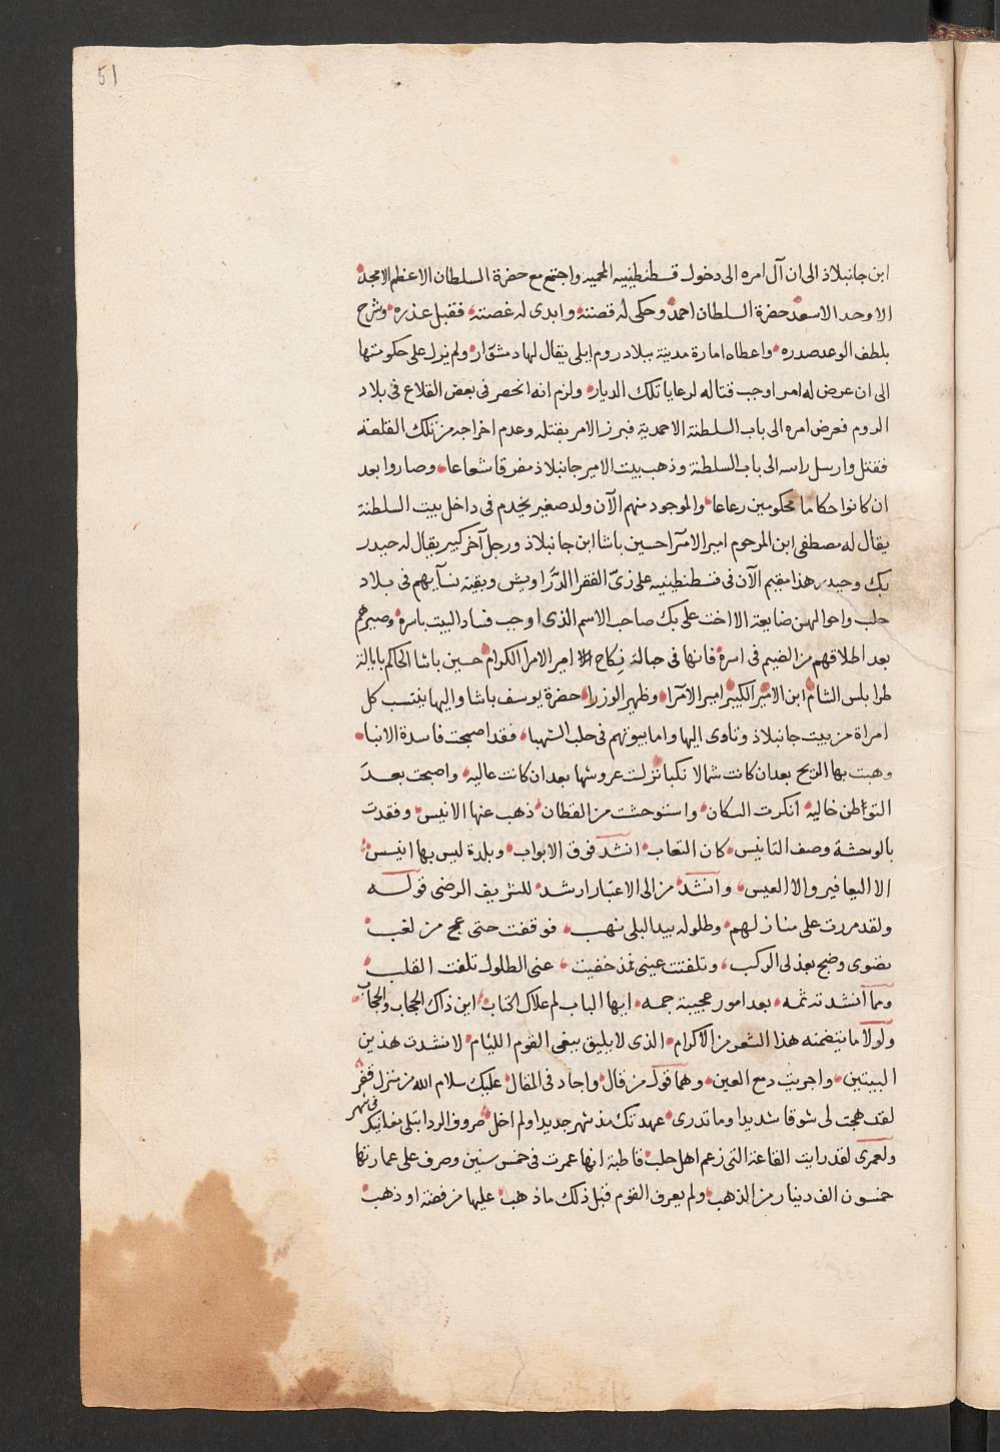 51
ابن جانبلاذ الى ان آل امره الى دخول قسطنطينيه المحميه واجتمع مع حضرة السلطان الاعظم الامجد
الاوحد الاسعد حضرة السلطان احمد وحكى له قصته وابدى له غصته فقبل عذره وشرح
بلطف الوعد صدره واعطاه امارة مدينة ببلاد روم ايلى يقال لها دمشوار ولم يزل على حكومتها
الى ان عرض له امر اوجب قتاله لرعايا تلك الديار ولزم انه انحصر فى بعض القلاع فى بلاد
الروم فعرض امره الى باب السلطنة الاحمدية فبرز الامر بقتله وعدم اخراجه من تلك القلعة
فقتل وارسل راسه الى باب السلطنة وذهب بيت الامير جانبلاذ مفرقا شعاعا وصاروا بعد
ان كانوا حكاما محكومين رعاعا والموجود منهم الآن ولد صغير يخدم فى داخل بيت السلطنة
يقال له مصطفى ابن المرحوم امير الامرآ حسين باشا ابن جانبلاذ ورجل آخر كبير يقال له حيدر
بك وحيدر هذا مقيم الآن فى قسطنطينيه على زىّ الفقرا الدّراويش وبقية نسآيهم فى بلاد
حلب واحوالهن ضايعة الا اخت على بك صاحب الاسم الذى اوجب فساد البيت باسره وصيرهم
بعد اطلاقهم من الضيم فى اسره فانها فى حبالة نكاح امير الامرا الكرام حسين باشا الحاكم بايالة
طرابلس الشام ابن الامير الكبير امير الامرآ وظهير الوزرا حضرة يوسف باشا واليها ينتسب كل
امراة من بيت جانبلاذ وتاوى اليها واما بيوتهم فى حلب الشهبا فقد اصبحت فاسدة الانبا
وهبت بها الريح بعد ان كانت شمالا نكبا نزلت عروشها بعد ان كانت عاليه واصبحت بعد
التواطن خاليه انكرت السكان واستوحشت من القطان ذهب عنها الانيس وفقدت
بالوحشة وصف التانيس كان النعاب انشد فوق الابواب وبلدة ليس بها انيس
الا اليعافير والا العيس وانشد من الى الاعتبار ارشد للشريف الرضى قوله
ولقد مررت على منازلهم وطلوله بيد البلى نهب فوقفت حتى عج من لغب
نضوى وضج بعذلى الركب وتلفتت عينى فمذ خفيت عنى الطلول تلفت القلب
ومما انشدته ثمه بعد امور عجيبة جمه ايها الباب لم علاك اين ذاك الحجاب والحجاب
ولولا ما يتضمنه هذا الشعر من الاكرام الذى لا يليق ببغى القوم الليام لانشدت هذين
البيتين واجريت دمع العين وهما قول من قال واجاد فى المقال عليك سلام الله من منزل قفر
لقد هجت لى شوقا شديدا وما تدرى عهدتك مذ شهر جديدا ولم اخل صروف الردا تبلى مغانيك
فى شهر
ولعمرى لقد رايت القاعة التى زعم اهل حلب قاطبة انها عمرت فى خمس سنين وصرف على عمارتها
خمسون الف دينار من الذهب ولم يعرف القوم قبل ذلك ما ذهب عليها من فضة او ذهب